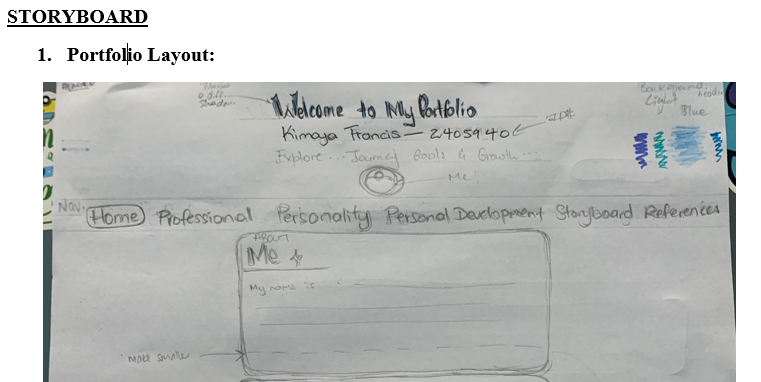 STORYBOARD
1. Portfolio Layout:
Welcome to My Portfolio
Kimaya Francis - 2405940
Explore ... Journey Goals & Growth ...
Me
Background:
Light
Blue
Nav.
Home Professional Personality Personal Development Storyboard References
ABOUT
Me
My name is
make smaller